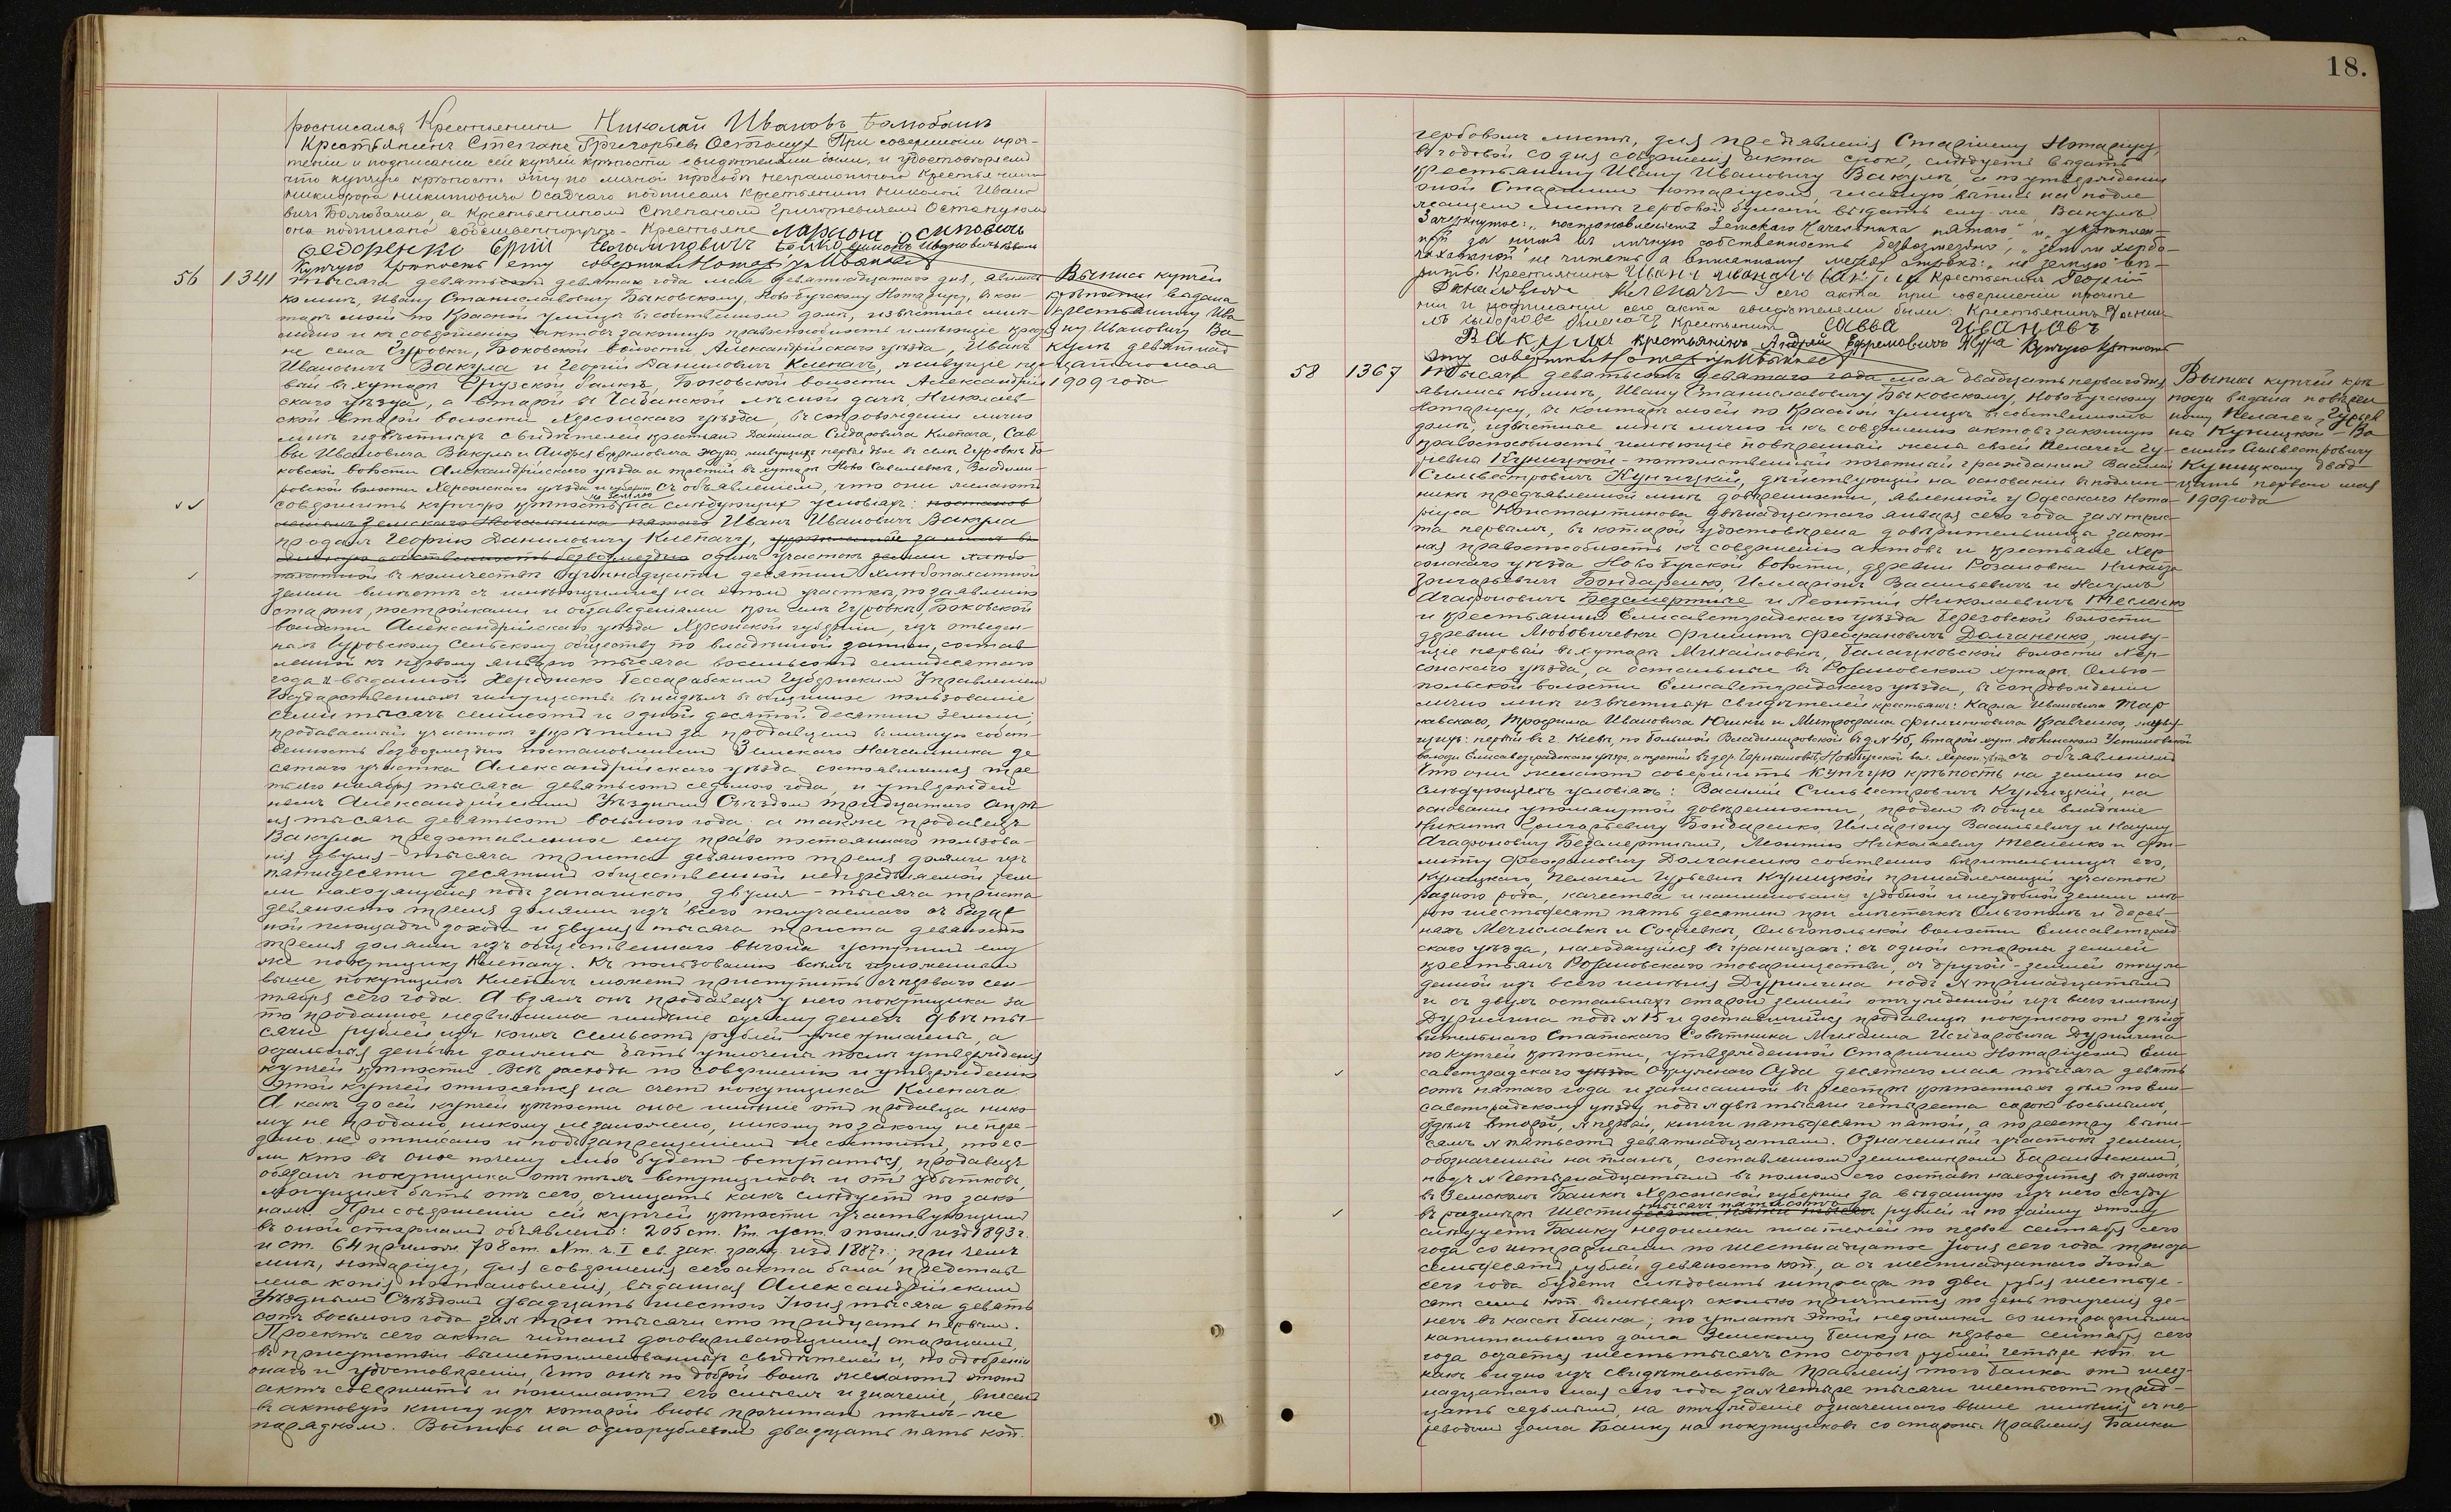 росписался Крестьянинъ Николай Ивановъ
Крестьянинъ Степанъ Григорьевъ Остапущ При совершеніи проч-
теніи и подписаніи сей купчей крѣпости свидѣтелями были, и удостовѣряемъ
что купчую крѣпость эту по личной просьбѣ неграмотнаго Крестьянина
Никифора Никитовича Осадчаго подписалъ Крестьянинъ Николай Ивано
вичъ, а Крестьяниномъ Степаномъ Григорьевичемъ
она подписана собственноручно - Крестьяне Ларионъ Осиповичъ
Федоренко
Купчую крѣпость эту совершилъ Нотаріусъ
56 1341 Тысяча девятьсотъ девятаго года мая девятнадцатаго дня, явились
ко мнѣ, Ивану Станиславовичу Быковскому, Ново-Бугскому Нотаріусу, въ кон-
тору мою по Красной улицѣ въ собственномъ домѣ, извѣстные мнѣ
лично и къ совершенію актовъ законную правоспособность имѣющіе крестья
не села Гуровки, Боковской волости, Александрійскаго уѣзда, Иванъ
Ивановичъ Вакула и Георгій Даниловичъ Клепачъ, живущіе пер
вый въ хуторѣ Балкѣ, Боковской волости Александрій
скаго уѣзда, а второй въ лѣсной дачѣ, Николаев
ской второй волости Херсонскаго уѣзда, въ сопровожденіи лично
мнѣ извѣстныхъ свидѣтелей крестьянъ Данила Сидоровича Клепача, Сав
вы Ивановича Вакулы и Андрея Ефремовича Жура, живущихъ первые двое въ селѣ Гуровкѣ Бо
ковской волости Александрійскаго уѣзда а третій въ хуторѣ Ново-Савельевкѣ, Владими-
ровской волости Херсонскаго уѣзда и губерніи съ объявленіемъ, что они желаютъ
на землю
совершить купчую крѣпость на слѣдующихъ условіяхъ: постанов
леніемъ Земскаго Начальника пятаго Иванъ Ивановичъ Вакула
продалъ Георгію Даниловичу Клепачу, укрѣпленный за нимъ въ
личную собственность безвозмездно одинъ участокъ земли хлѣбо
пахатной въ количествѣ десятинъ хлѣбопахатной
земли вмѣстѣ съ имѣющимися на этомъ участкѣ, по заявленію
сторонъ, постройками и обзаведеніями при селѣ Гуровкѣ, Боковской
волости Александрійскаго уѣзда Херсонской губерніи, изъ отведен-
ныхъ Гуровскому Сельскому обществу по владѣнной записи, состав
ленной къ первому января тысяча восемьсотъ семидесятаго
года и выданной Херсонско Бессарабскимъ Губернскимъ Управленіемъ
Государственныхъ имуществъ въ надѣлъ въ общинное пользованіе
семи тысячъ семисотъ и одной десятой десятинъ земли;
продаваемый участокъ укрѣпленъ за продавцемъ въ личную собст-
венность безвозмездно постановленіемъ Земскаго Начальника де
сятаго участка Александрійскаго уѣзда состоявшимся тре
тьяго ноября тысяча девятьсотъ седьмого года, и утвержден
нымъ Александрійскимъ Уѣзднымъ Съѣздомъ тридцатаго апрѣ
ля тысяча девятьсотъ восьмого года; а также продавецъ
Вакула предоставленное ему право постояннаго пользова-
нія двумя - тысяча триста девяносто тремя долями изъ
пятидесяти десятинъ общественной нераздѣляемой зем
ли находящейся подъ, двумя - тысяча триста
девяносто тремя долями изъ всего получаемаго съ базар
ной площади дохода и двумя - тысяча триста девяносто
тремя долями изъ общественнаго выгона уступилъ ему
же покупщику Клепачу. Къ пользованію всѣмъ изложеннымъ
выше покупщикъ Клепачъ можетъ приступить съ перваго сен-
тября сего года. А взялъ онъ продавецъ у него покупщика за
то проданное недвижимое имѣніе сумму денегъ двѣ ты-
сячи рублей, изъ коихъ семьсотъ рублей уже уплачены, а
остальныя деньги должны быть уплочены послѣ утвержденія
купчей крѣпости. Всѣ расходы по совершенію и утвержденію
этой купчей относятся на счетъ покупщика Клепача.
А какъ до сей купчей крѣпости оное имѣніе отъ продавца нико
му не продано, никому не заложено, никому по закону не пере-
дано не отписано и подъ запрещеніемъ не состоитъ, то ес-
ли кто въ оное почему либо будетъ вступаться, продавецъ
обязанъ покупщика отъ тѣхъ вступщиковъ и отъ убытковъ,
могущихъ быть отъ сего, очищать какъ слѣдуетъ по зако-
намъ. При совершеніи сей купчей крѣпости участвующимъ
въ оной сторонамъ объявлено: 205 ст. Vт. уст. о пошл. изд 1893 г.
и ст. 64 прилож. 708 ст. Xт. ч. I св. зак. гражд. изд. 1887 г.; при чемъ
мнѣ, нотаріусу, для совершенія сего акта была представ
лена копія постановленія, выданная Александрійскимъ
Уѣзднымъ Съѣздомъ двадцать шестого Іюня тысяча девять
сотъ восьмого года за № три тысячи сто тридцать первымъ.
Проектъ сего акта читанъ договаривающимися сторонамъ,
въ присутствіи вышепоименованныхъ свидѣтелей и, по одобреніи
онаго и удостовѣреніи, что онѣ по доброй волѣ желаютъ этотъ
актъ совершить и понимаютъ его смыслъ и значеніе, внесенъ
въ актовую книгу изъ которой вновь прочитанъ тѣмъ-же
порядкомъ. Выпись на однорублевомъ двадцать пять коп.
Выпись купчей
крѣпости выдана
крестьянину Ива
ну Ивановичу Ва
кулѣ девятнад
цатаго мая
1909 года
18.
гербовомъ листѣ, для предъявленія Старшему Нотаріусу,
въ годовой со дня совершенія акта срокъ, слѣдуетъ выдать
Крестьянину Ивану Ивановичу Вакулѣ, а по утвержденіи
оной Старшимъ Нотаріусомъ, главную выпись на подле
жащемъ листѣ гербовой бумаги выдать ему-же, Вакулѣ
Зачеркнутое: „постановленіемъ Земскаго Начальника пятаго" и „укрѣплен-
ный за нимъ въ личную собственность безвозмездно", „земли хлѣбо-
пахатной" не читать, а вписанному между строкъ: „на землю" вѣ-
рить. Крестьянинъ Иванъ Ивановъ Вакула Крестьянинъ Георгій
Клепачъ У сего акта при совершеніи прочте
ніи и подписаніи сего акта свидѣтелями были: Крестьянинъ Дании
лъ Сидоровъ Клепачъ Крестьянинъ САВВА ИВАНОВЪ
Вакула крестьянинъ Андрей Ефремовичъ Жура Купчую крѣпость
эту совершилъ Нотаріусъ
58 1367 Тысяча девятьсотъ девятаго года мая двадцать перваго дня,
явились ко мнѣ, Ивану Станиславовичу Быковскому, Новобугскому
Нотаріусу, въ контору мою по Красной улицѣ въ собственномъ
домѣ, извѣстные мнѣ лично и къ совершенію актовъ законную
правоспособность имѣющіе повѣренный жены своей Пелагеи Гу-
рьевны Куницкой - потомственный почетный гражданинъ Василій
Сильвестровичъ Куницкій, дѣйствующій на основаніи подлин-
никѣ предъявленной мнѣ довѣренности, явленной у Одесскаго Нота-
ріуса Константинова двѣнадцатаго января сего года за № трис-
та первымъ, въ которой удостовѣрена довѣрительницы закон-
ная правоспособность къ совершенію актовъ и крестьяне Хер
сонскаго уѣзда Ново Бугской волости, деревни Розановки Никита
Григорьевичъ Бондаренко, Илларіонъ Васильевичъ и Наумъ
Агафоновичъ Безсмертные и Леонтій Николаевичъ Тесленко
и крестьянинъ Елисаветградскаго уѣзда Березовской волости
деревни Любовичевки Филиппъ Феофановичъ Долганенко, живу-
щіе первый въ хуторѣ Михайловкѣ, Балацковской волости Хер-
сонскаго уѣзда, а остальные въ Розановскомъ хуторѣ Ольго-
польской волости Елисаветградскаго уѣзда, въ сопровожденіи
лично мнѣ извѣстныхъ свидѣтелей крестьянъ: Карпа Ивановича Тар
навскаго, Трофима Ивановича Юшки и Митрофана Филипповича Кравченко, живу-
щихъ: первый въ г. Кіевѣ, по Большой Владимировской въ д. № 45, второй хут.
волости Елисаветградскаго уѣзда, а третій въ дер., Новобугской вол. Херсон. уѣзда съ объявленіемъ
что они желаютъ совершить купчую крѣпость на землю на
слѣдующихъ условіяхъ: Василій Сильвестровичъ Куницкій, на
основаніи упомянутой довѣренности, продалъ въ общее владѣніе
Никитѣ Григорьевичу Бондаренко, Илларіону Васильевичу и Науму
Агафоновичу Безсмертнымъ, Леонтію Николаевичу Тесленко и Фи-
липпу Феофановичу Долганенко собственно вѣрительницы его,
Куницкаго, Пелагеи Гурьевны Куницкой принадлежащій участокъ
разнаго рода, качества и наименованія удобной и неудобной земли мѣ
рою шестьдесятъ пять десятинъ при мѣстечкѣ Ольгополѣ и дерев-
няхъ Мечиславкѣ и Софіевкѣ, Ольгопольской волости Елисаветград
скаго уѣзда, находящійся въ границахъ: съ одной стороны землей
крестьянъ Розановскаго товарищества, съ другой - землей отчуж
денной изъ всего имѣнія Дурилина подъ № тринадцатымъ
и съ двухъ остальныхъ сторонъ землей отчужденной изъ всего имѣнія
Дурилина подъ № 15 и доставшійся продавцу покупкою отъ дѣйст
вительнаго Статскаго Совѣтника Михаила Исидоровича Дурилина
по купчей крѣпости, утвержденной Старшимъ Нотаріусомъ Ели
саветградскаго уѣзда Окружнаго Суда десятаго мая тысяча девять
сотъ пятаго года и записанной въ реестръ крѣпостныхъ дѣлъ по Ели-
саветградскому уѣзду подъ № двѣ тысячи четыреста сорокъ восьмымъ,
отдѣлъ второй, № первый, книги пятьдесятъ пятой, а по реестру выпи-
семъ № пятьсотъ девятнадцатымъ. Означенный участокъ земли,
обозначенный на планѣ, составленномъ землемѣромъ Барановскимъ,
подъ № четырнадцатымъ въ полномъ его составѣ находится въ залогѣ
въ Земскомъ Банкѣ Херсонской губерніи за выданную изъ него ссуду
тысячъ пятьсотъ
въ размѣрѣ шести рублей и по займу этому
слѣдуетъ Банку недоимки платежей по первое сентября сего
года со штрафными по шестнадцатое Іюня сего года триста
семьдесятъ рублей девяносто коп, а съ шестнадцатаго Іюня
сего года будетъ слѣдовать штрафа по два рубля шестьде-
сятъ семь коп. въ мѣсяцъ сколько причтется по день полученія де-
негъ въ кассѣ банка; по уплатѣ этой недоимки со штрафными
капитальнаго долга Земскому Банку на первое сентября сего
года остается шесть тысячъ сто сорокъ рублей четыре коп. и
какъ видно изъ свидѣтельства Правленія того Банка отъ шест-
надцатаго мая сего года за № четыре тысячи шестьсотъ трид-
цать седьмымъ, на отчужденіе означеннаго выше имѣнія съ пе-
реводомъ долга Банку на покупщиковъ со стороны Правленія Банка
Выпись купчей крѣ
пости выдана повѣрен
ному Пелагеи Гурьев
ны Куницкой - Ва
силію Сильвестровичу
Куницкому двад-
цать перваго мая
1909 года